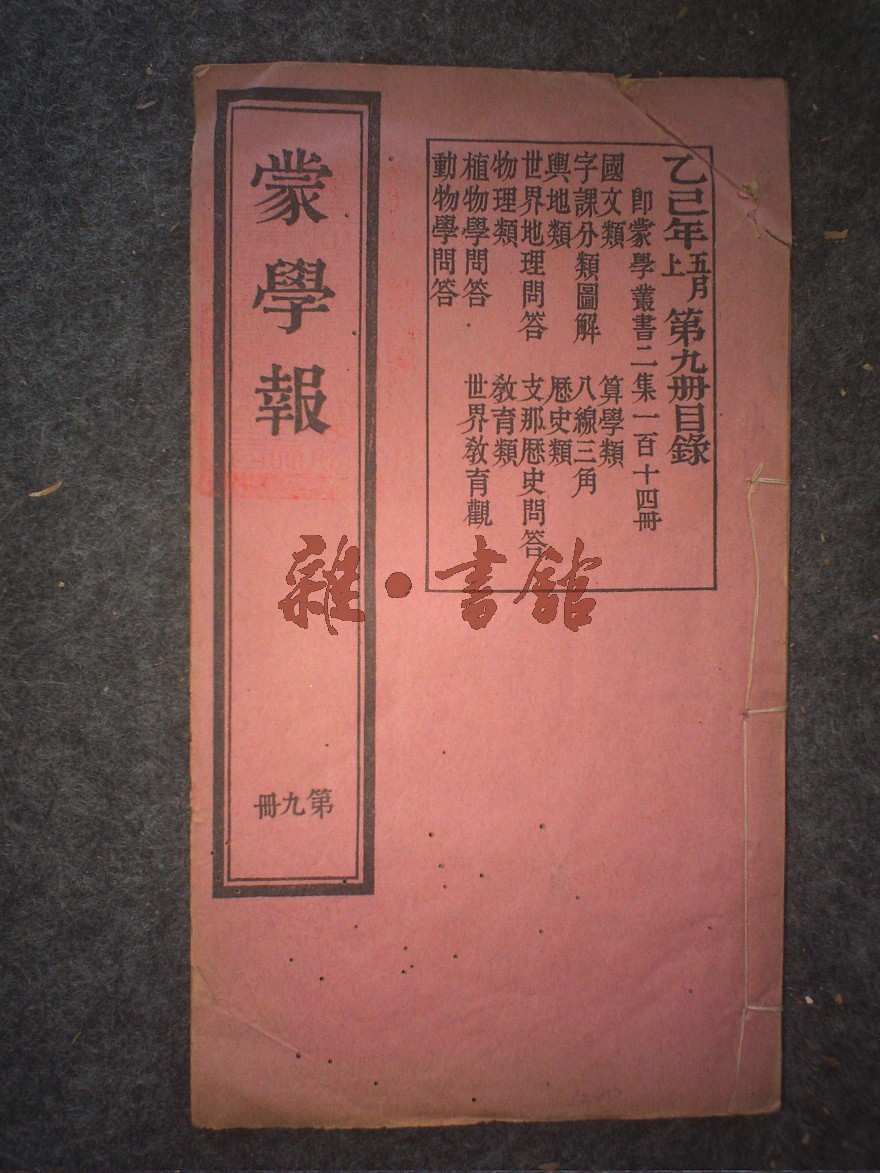 乙巳年五月上第九册目錄
即蒙學叢書二集一百十四冊
國文類 算學類
字課分類圖解 八線三角
輿地類 歷史類
世界地理問答 支那歷史問答
物理類 教育類
植物學問答 世界教育觀
動物學問答
蒙學報
第九冊
雜·書館